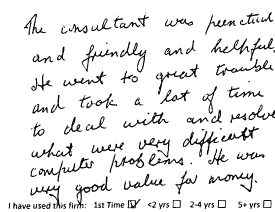 The consultant was punctual
and friendly and helpful.
He went to great trouble
and took a lot of time
to deal with and resolve
what were very difficult
computer problems. He was
very good value for money.
I have used this firm: 1st Time ☑ <2 yrs ☐ 2-4 yrs ☐ 5+ yrs ☐